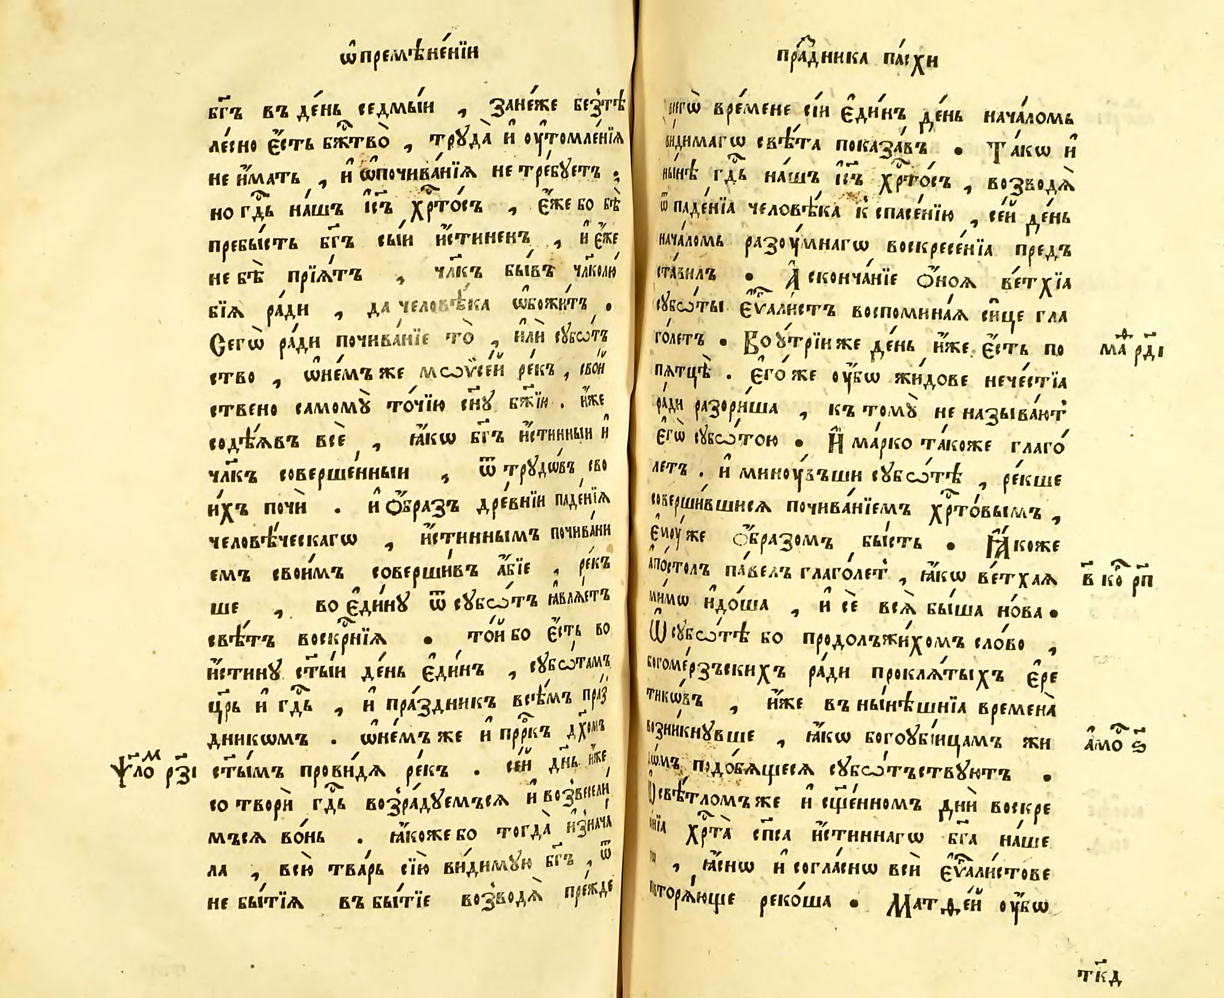 ѡ҆премѣне́нїи
бг҃ъ въ де́нь седмы́и , зане́же безтѣ
ле́сно є҆́сть бж҃тво̀ , труда̀ и҆ ᲂу҆томле́нїѧ
не и҆́мать , и҆ ѿпочива́нїѧ не тре́буетъ .
но гдⷭ҇ь на́шъ і҆с҃ъ хрⷭ҇то́съ , є҆́же бо бѣ̀
пребы́сть бг҃ъ сы́и и҆́стиненъ , и҆ є҆́же
не бѣ̀ прїѧ́тъ , чл҃къ бы́въ чл҃колю́
бїѧ ра́ди , да человѣ́ка ѡ҆божи́тъ .
Сегѡ̀ ра́ди почива́нїе то̀ , и҆лѝ субѡ́тъ
ство , ѡ҆не́мъ же мѡѷсе́й ре́къ , сво́й
ствено самомꙋ̀ то́чїю сн҃у бж҃їю . и҆́же
содѣ́ѧвъ всѐ , ꙗ҆́кѡ бг҃ъ и҆́стинныи и҆
чл҃къ соверше́нныи , ѿ трудѡ́въ сво
и́хъ почѝ . и҆ ѻ҆́бразъ дре́внїи паде́нїѧ
человѣ́ческагѡ , и҆́стиннымъ почива́нїи
емъ свои́мъ соверши́въ а҆́бїе , ре́къ
ше , во є҆ди́ну ѿ субѡ́тъ ꙗ҆влѧ́етъ
свѣ́тъ воскрⷭ҇нїѧ . то́й бо є҆́сть во
и҆́стину ст҃ы́и де́нь є҆ди́нъ , субѡ́тамъ
цр҃ь и҆ гдⷭ҇ь , и҆ пра́здникъ всѣ́мъ пра́з
дникѡмъ . ѡ҆не́мъ же и҆ прⷪ҇ркъ дх҃омъ
ѱало́ м҃ рз҃і
ст҃ы́мъ прови́дѧ ре́къ . се́й дн҃ь и҆́же
сотворѝ гдⷭ҇ь возра́дуемъсѧ и҆ возвесели́
мъсѧ во́нь . ꙗ҆́коже бо тогда̀ и҆знача́
ла , всю̀ тва́рь сїю̀ ви́димую бг҃ъ , ѿ
не бытїѧ̀ въ бытїѐ возводѧ̀ пре́жде
пра́здника па́схи
негѡ̀ вре́мене сі́и є҆ди́нъ де́нь нача́ломъ
ви́димагѡ свѣ́та показа́въ . Та́кѡ и҆
ны́нѣ гдⷭ҇ь на́шъ і҆с҃ъ хрⷭ҇то́съ , возводѧ̀
ѿ паде́нїѧ человѣ́ка к̾ спасе́нїю , се́й де́нь
нача́ломъ разꙋ́мнагѡ воскресе́нїѧ пред̾
ста́вилъ . А҆ сконча́нїе ѻ҆́ноѧ ве́тхїѧ
субѡ́ты є҆ѵⷢ҇али́стъ воспомина́ѧ си́це гла
го́летъ . Во ᲂу҆́трїи же де́нь и҆́же є҆́сть по
мⷴ҇а́ рд҃і
пѧтцѣ̀ . є҆го́же ᲂу҆́бѡ жи́дове нече́стїѧ
ра́ди разори́ша , к̾ томꙋ̀ не называ́ютъ
є҆гѡ̀ субѡ́тою . И҆ ма́рко та́коже глаго́
летъ . и҆ минꙋ́въши субѡ́тѣ , ре́кше
соверши́вшисѧ почива́нїемъ хрⷭ҇то́вымъ ,
є҆мꙋ́же ѻ҆́бразомъ бы́сть . Ꙗ҆́коже
а҆по́столъ па́велъ глаго́летъ , ꙗ҆́кѡ ве́тхаѧ
в҃ ко рп
ми́мѡ и҆до́ша , и҆ сѐ всѧ̀ бы́ша но́ва .
Ѡ҆ субѡ́тѣ бо продолъжи́хомъ сло́во ,
богоме́рзъскихъ ра́ди проклѧ́тыхъ є҆ре
тикѡ́въ , и҆́же въ ны́нѣшнїѧ времена̀
возни́кнувше , ꙗ҆́кѡ богоуби́йцамъ жи
а҆моⷭ҇ ѕ҃
дѡ́мъ подо́бѧщесѧ субѡ́тъствуютъ .
Ѡ҆ свѣ́тломъ же и҆ сщ҃е́нномъ днѝ воскре
се́нїѧ хрⷭ҇та̀ сп҃са и҆́стиннагѡ бг҃а на́ше
го , ꙗ҆́снѡ и҆ согла́снѡ всѝ є҆ѵⷢ҇али́стове
повторѧ́юще реко́ша . Матѳе́й ᲂу҆́бѡ
тк҃д